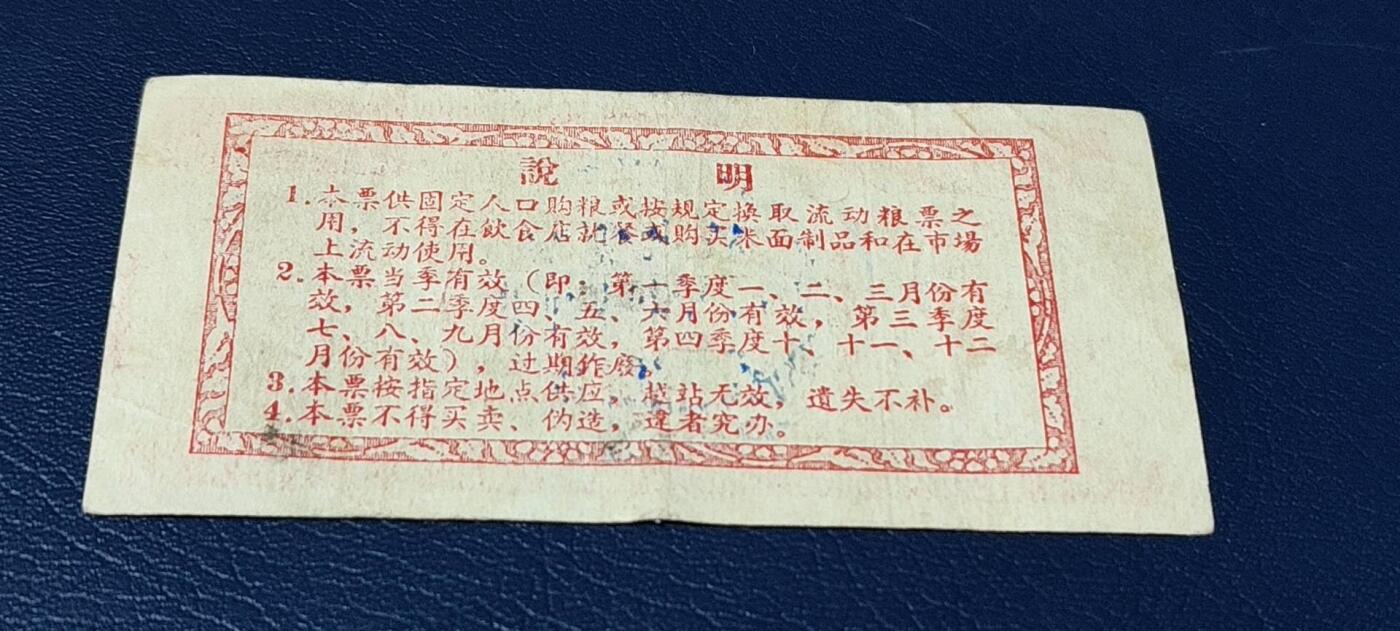 說 明
1. 本票供固定人口购粮或按规定换取流动粮票之
用，不得在飲食店就餐或购买米面制品和在市場
上流动使用。
2. 本票当季有效（即：第一季度一、二、三月份有
效，第二季度四、五、六月份有效，第三季度
七、八、九月份有效，第四季度十、十一、十二
月份有效），过期作废。
3. 本票按指定地点供应，越站无效，遺失不补。
4. 本票不得买卖、伪造，違者究办。